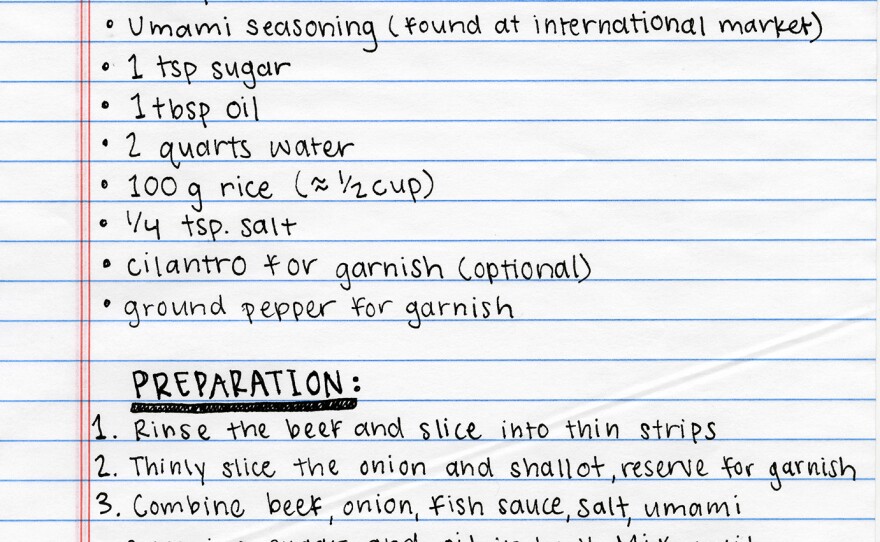 • Umami seasoning (found at international market)
• 1 tsp sugar
• 1 tbsp oil
• 2 quarts water
• 100 g rice (≈ 1/2 cup)
• 1/4 tsp. salt
• cilantro for garnish (optional)
• ground pepper for garnish
PREPARATION:
1. Rinse the beef and slice into thin strips
2. Thinly slice the onion and shallot, reserve for garnish
3. Combine beef, onion, fish sauce, salt, umami